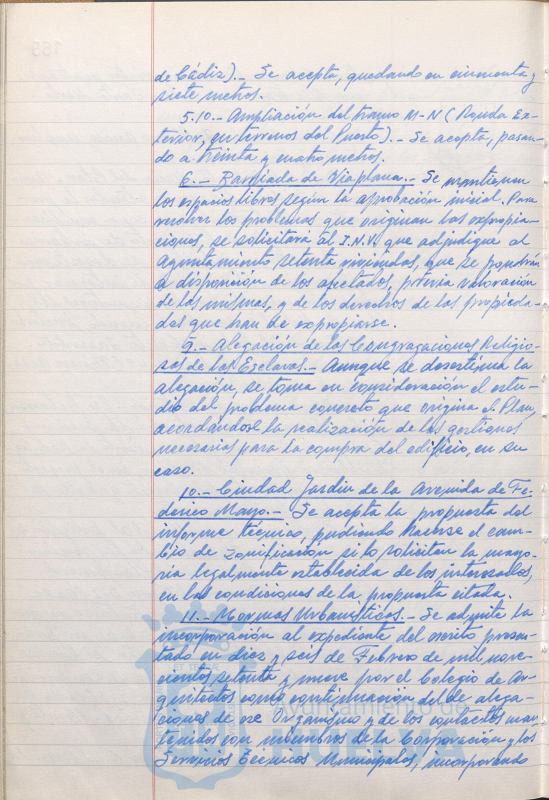 de Cádiz).- Se acepta, quedando en cincuenta y
siete metros.
5.10.- Ampliación del tramo M-N (Ronda Ex-
terior, en terrenos del Puerto).- Se acepta, pasan-
do a treinta y cuatro metros.
6.- Barriada de Viaplana.- Se mantienen
los espacios libres según la aprobación inicial. Para
resolver los problemas que originan las expropia-
ciones, se solicitará al I.N.V. que adjudique al
ayuntamiento setenta viviendas, que se pondrán
a disposición de los afectados, previa valoración
de las mismas, y de los derechos de las propieda-
des que han de expropiarse.
9.- Alegación de las Congregaciones Religio-
sas de las Esclavas.- Aunque se desestima la
alegación, se toma en consideración el estu-
dio del problema concreto que origina el Plan,
acordándose la realización de las gestiones
necesarias para la compra del edificio, en su
caso.
10.- Ciudad Jardín de la Avenida de Fe-
derico Mayo.- Se acepta la propuesta del
informe técnico, pudiendo hacerse el cam-
bio de zonificación si lo solicitan la mayo-
ría legalmente establecida de los interesados,
en las condiciones de la propuesta citada.
11.- Normas Urbanísticas.- Se admite la
incorporación al expediente del escrito presen-
tado en diez y seis de Febrero de mil nove-
cientos setenta y nueve por el Colegio de Ar-
quitectos como continuación del de alega-
ciones de ese Organismo y de los contactos man-
tenidos con miembros de la Corporación y los
Servicios Técnicos Municipales, incorporando
Ayuntamiento de
HUELVA